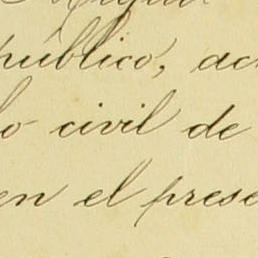 público, ac
lo civil de
en el prese